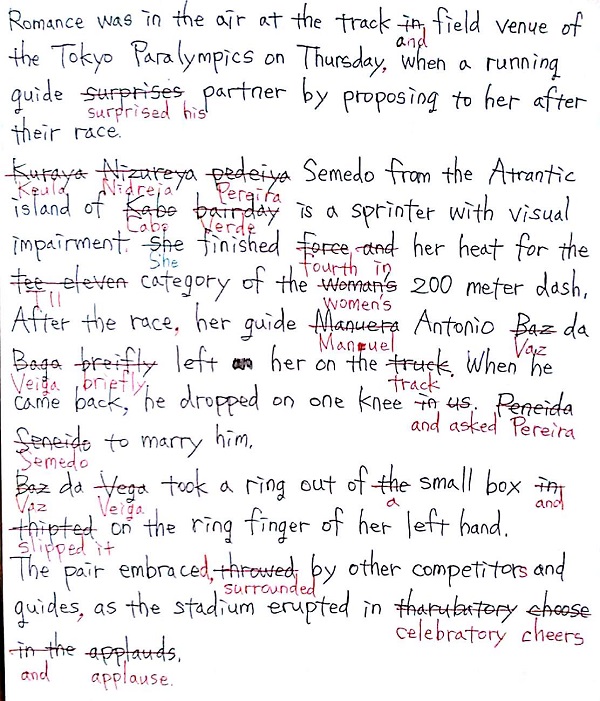 Romance was in the air at the track in field venue of
and
the Tokyo Paralympics on Thursday, when a running
guide surprises partner by proposing to her after
surprised his
their race.
Kuraya Nizureya pedeiya Semedo from the Atrantic
Keula Nidreia Pereira
island of Kabo bairday is a sprinter with visual
Cabo Verde
impairment. She finished force and her heat for the
She fourth in
tee eleven category of the Woman's 200 meter dash.
T11 women's
After the race, her guide Manuera Antonio Baz da
Manuel Vaz
Baga breifly left her on the truck. When he
Veiga briefly track
came back, he dropped on one knee in us. Peneida
and asked Pereira
Seneido to marry him.
Semedo
Baz da Vega took a ring out of the small box in
Vaz Veiga a and
thipted on the ring finger of her left hand.
slipped it
The pair embraced, throwed by other competitors and
surrounded
guides, as the stadium erupted in tharubratory choose
celebratory cheers
in the applauds.
and applause.